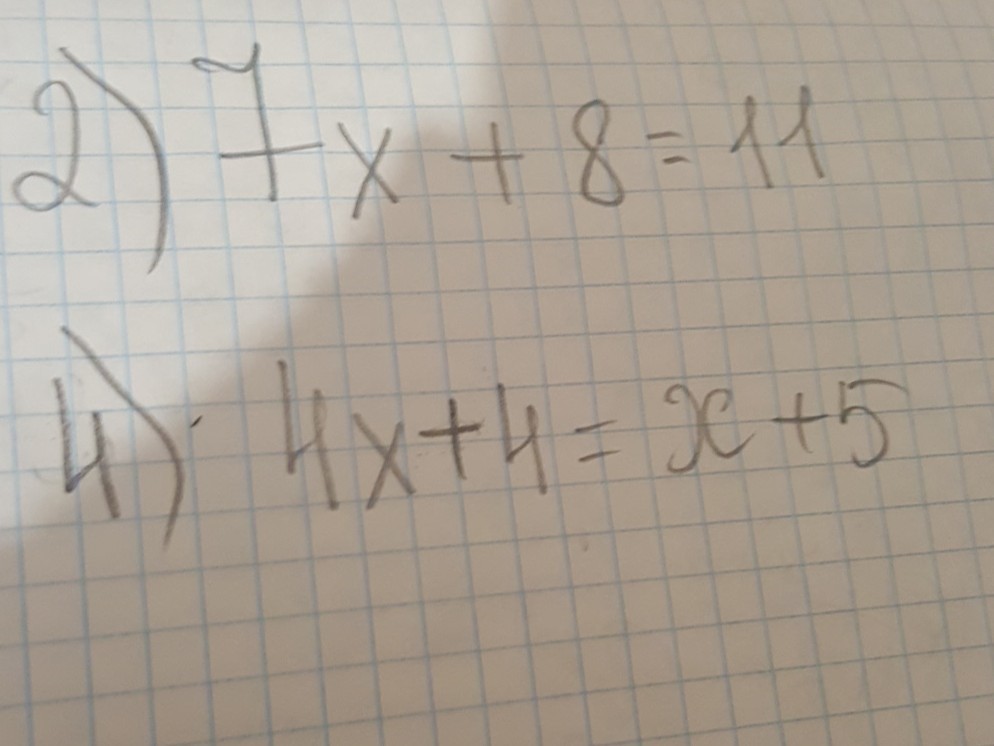 2) 7x + 8 = 11
4) 4x + 4 = x + 5